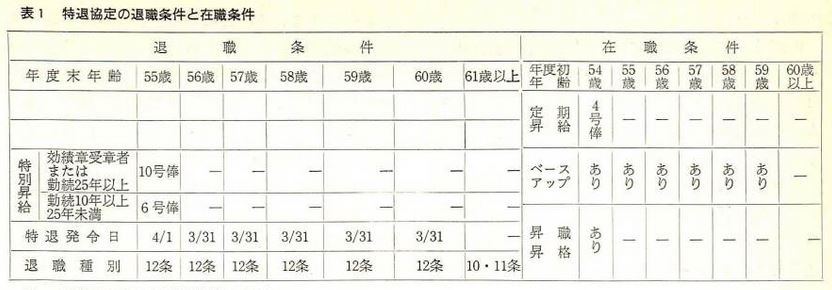 表1 特退協定の退職条件と在職条件
退職条件
年度末年齢 55歳 56歳 57歳 58歳 59歳 60歳 61歳以上
特別昇給
効績章受章者
または
勤続25年以上
10号俸 — — — — — —
勤続10年以上
25年未満
6号俸 — — — — — —
特退発令日 4/1 3/31 3/31 3/31 3/31 3/31 —
退職種別 12条 12条 12条 12条 12条 12条 10・11条
在職条件
年度初年齢 54歳 55歳 56歳 57歳 58歳 59歳 60歳以上
定期昇給 4号俸 — — — — — —
ベースアップ あり あり あり あり あり あり —
昇職昇格 あり — — — — — —